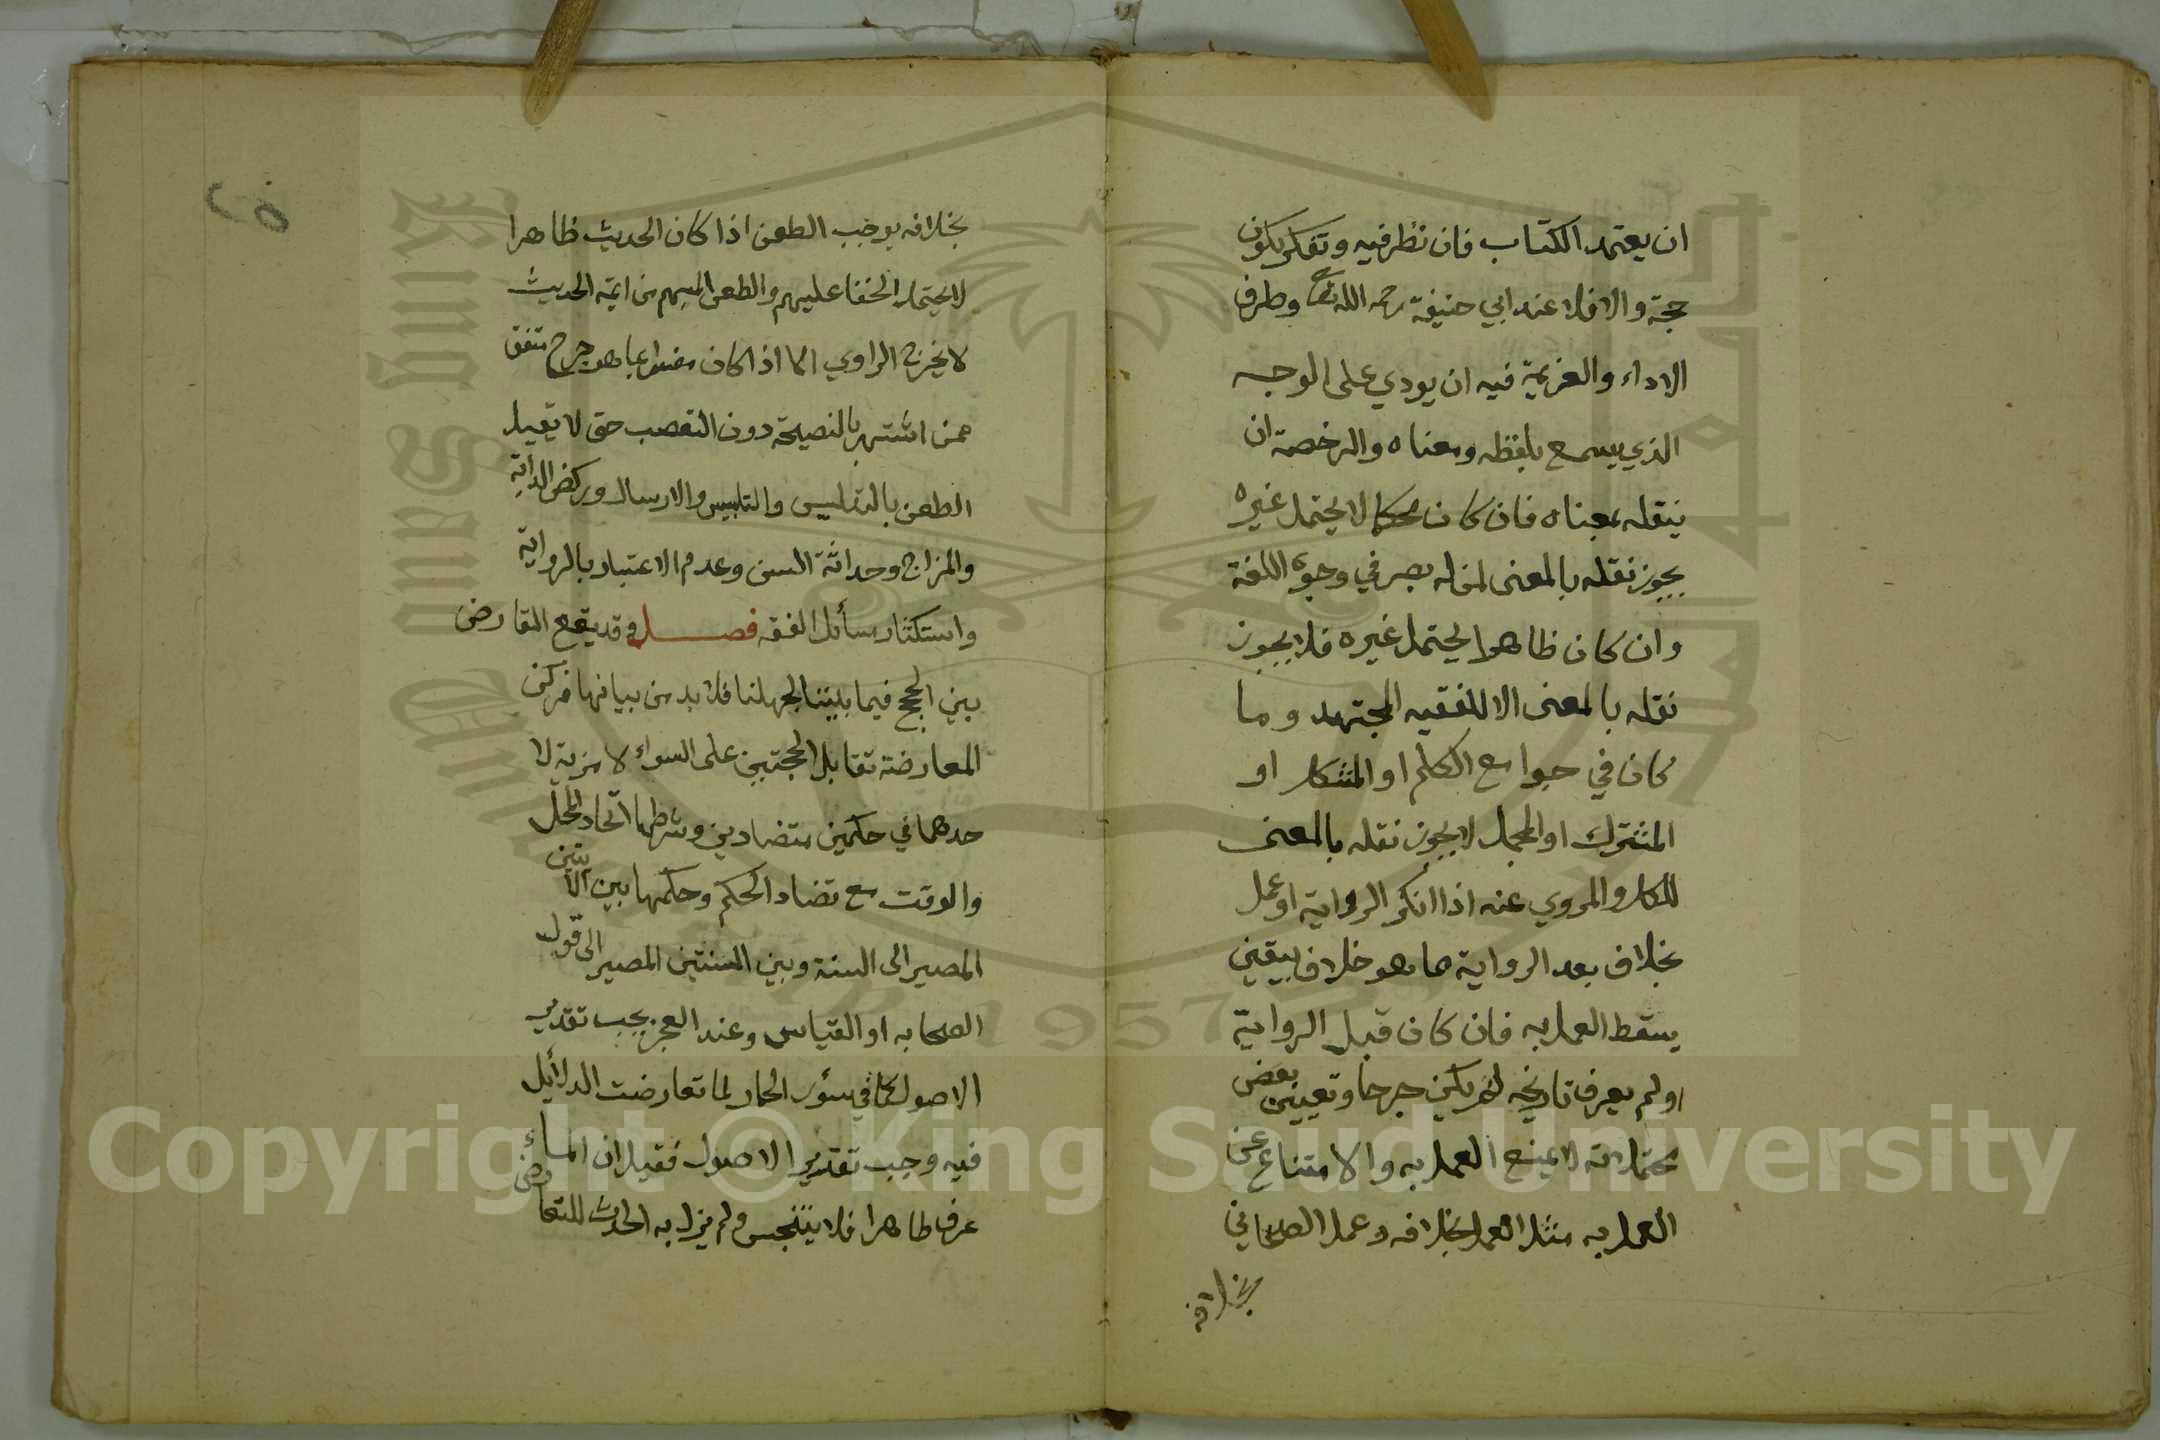 ان يعتمد الكتاب فان نظر فيه وتفكر يكون
حجة والا فلا عند ابي حنيفة رحمه الله تعا وطرف
الاداء والعزيمة فيه ان يودي على الوجه
الذي يسمع بلفظه ومعناه والرخصة ان
ينقله بمعناه فان كان محكما لا يحتمل غيره
يجوز نقله بالمعنى لمن له بصر في وجوه اللغة
وان كان ظاهرا يحتمل غيره فلا يجوز
نقله بالمعنى الا للفقيه المجتهد وما
كان في جوامع الكلم او المشكل او
المشترك او المجمل لا يجوز نقله بالمعنى
للكل والمروي عنه اذا انكر الرواية او عمل
بخلاف بعد الرواية مما هو خلاف بيقين
يسقط العمل به فان كان قبل الرواية
اولم يعرف تاريخه لم يكن جرحا وتعيين بعض
محتملاته لا يمنع العمل به والامتناع عن
العمل به مثل العمل بخلافه وعمل الصحابي
بخلافه
بخلافه يوجب الطعن اذا كان الحديث ظاهرا
لا يحتمل الخفا عليهم والطعن المبهم من ائمة الحديث
لا يخرج الراوي الا اذا كان مفسرا بما هو جرح متفق
ممن اشتهر بالنصيحة دون التعصب حتى لا يقبل
الطعن بالتدليس والتلبيس والارسال وركض الدابة
والمزاح وحداثة السن وعدم الاعتياد بالرواية
واستكثار مسائل الفقه فصل وقد يقع التعارض
بين الحجج فيما بيننا لجهلنا فلا بد من بيانها فركن
المعارضة تقابل الحجتين على السواء لا مزية لا
حدهما في حكمين متضادين وشرطها اتحاد المحل
والوقت مع تضاد الحكم وحكمها بين الآيتين
المصير الى السنة وبين السنتين المصير الى قول
الصحابه او القياس وعند العجز يجب تقدير
الاصول كما في سؤر الحمار لما تعارضت الدلائل
فيه وجب تقدير الاصول فقيل ان الماء
عرف طاهرا فلا يتنجس ولم يزل به الحدث للتعارض
Copyright © King Saud University
King Saud University
1957